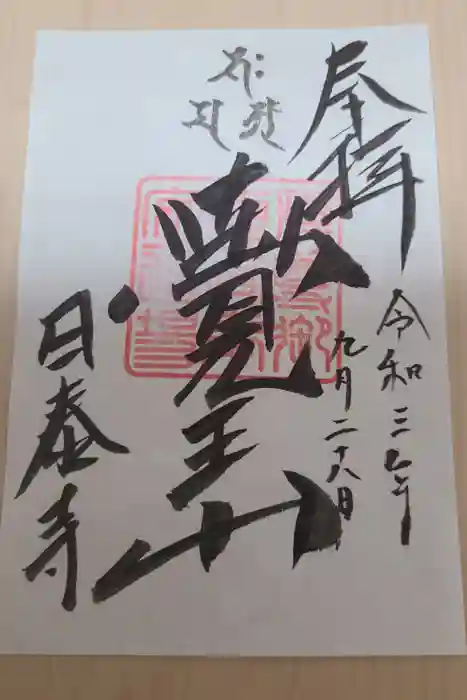 奉拝
令和三年
九月二十八日
覚王山
日泰寺